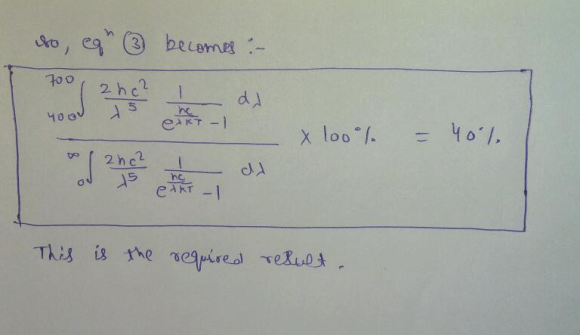 so, eqⁿ ③ becomes :-
700
400 ∫ 2hc²/λ⁵ 1/(e^(hc/λKT) -1) dλ
∞
0 ∫ 2hc²/λ⁵ 1/(e^(hc/λKT) -1) dλ
× 100% = 40%
This is the required result.